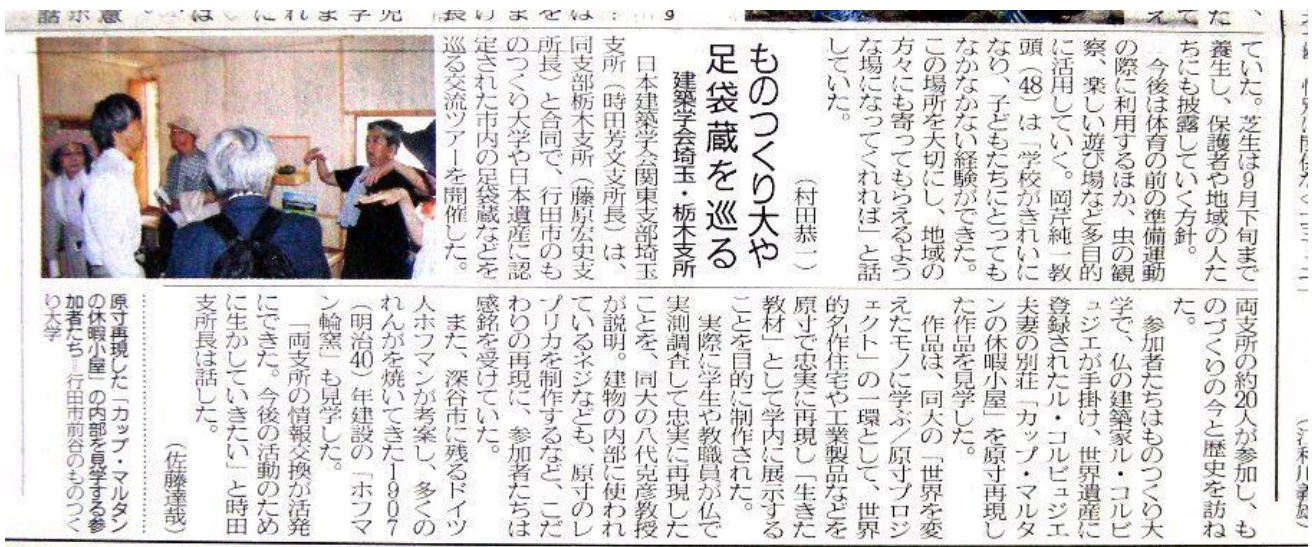 ていた。芝生は9月下旬まで
養生し、保護者や地域の人た
ちにも披露していく方針。
今後は体育の前の準備運動
の際に利用するほか、虫の観
察、楽しい遊び場など多目的
に活用していく。岡芹純一教
頭(48)は「学校がきれいに
なり、子どもたちにとっても
なかなかない経験ができた。
この場所を大切にし、地域の
方々にも寄ってもらえるよう
な場になってくれれば」と話
していた。
(村田恭一)
ものつくり大や
足袋蔵を巡る
建築学会埼玉・栃木支所
日本建築学会関東支部埼玉
支所(時田芳文支所長)は、
同支部栃木支所(藤原宏史支
所長)と合同で、行田市のも
のつくり大学や日本遺産に認
定された市内の足袋蔵などを
巡る交流ツアーを開催した。
両支所の約20人が参加し、も
のづくりの今と歴史を訪ね
た。
参加者たちはものつくり大
学で、仏の建築家ル・コルビ
ュジエが手掛け、世界遺産に
登録されたル・コルビュジエ
夫妻の別荘「カップ・マルタ
ンの休暇小屋」を原寸再現し
た作品を見学した。
作品は、同大の「世界を変
えたモノに学ぶ/原寸プロジ
ェクト」の一環として、世界
的名作住宅や工業製品などを
原寸で忠実に再現し「生きた
教材」として学内に展示する
ことを目的に制作された。
実際に学生や教職員が仏で
実測調査して忠実に再現した
ことを、同大の八代克彦教授
が説明。建物の内部に使われ
ているネジなども、原寸のレ
プリカを制作するなど、こだ
わりの再現に、参加者たちは
感銘を受けていた。
また、深谷市に残るドイツ
人ホフマンが考案し、多くの
れんがを焼いてきた1907
(明治40)年建設の「ホフマ
ン輪窯」も見学した。
「両支所の情報交換が活発
にできた。今後の活動のため
に生かしていきたい」と時田
支所長は話した。
(佐藤達哉)
原寸再現した「カップ・マルタン
の休暇小屋」の内部を見学する参
加者たち=行田市前谷のものつく
り大学